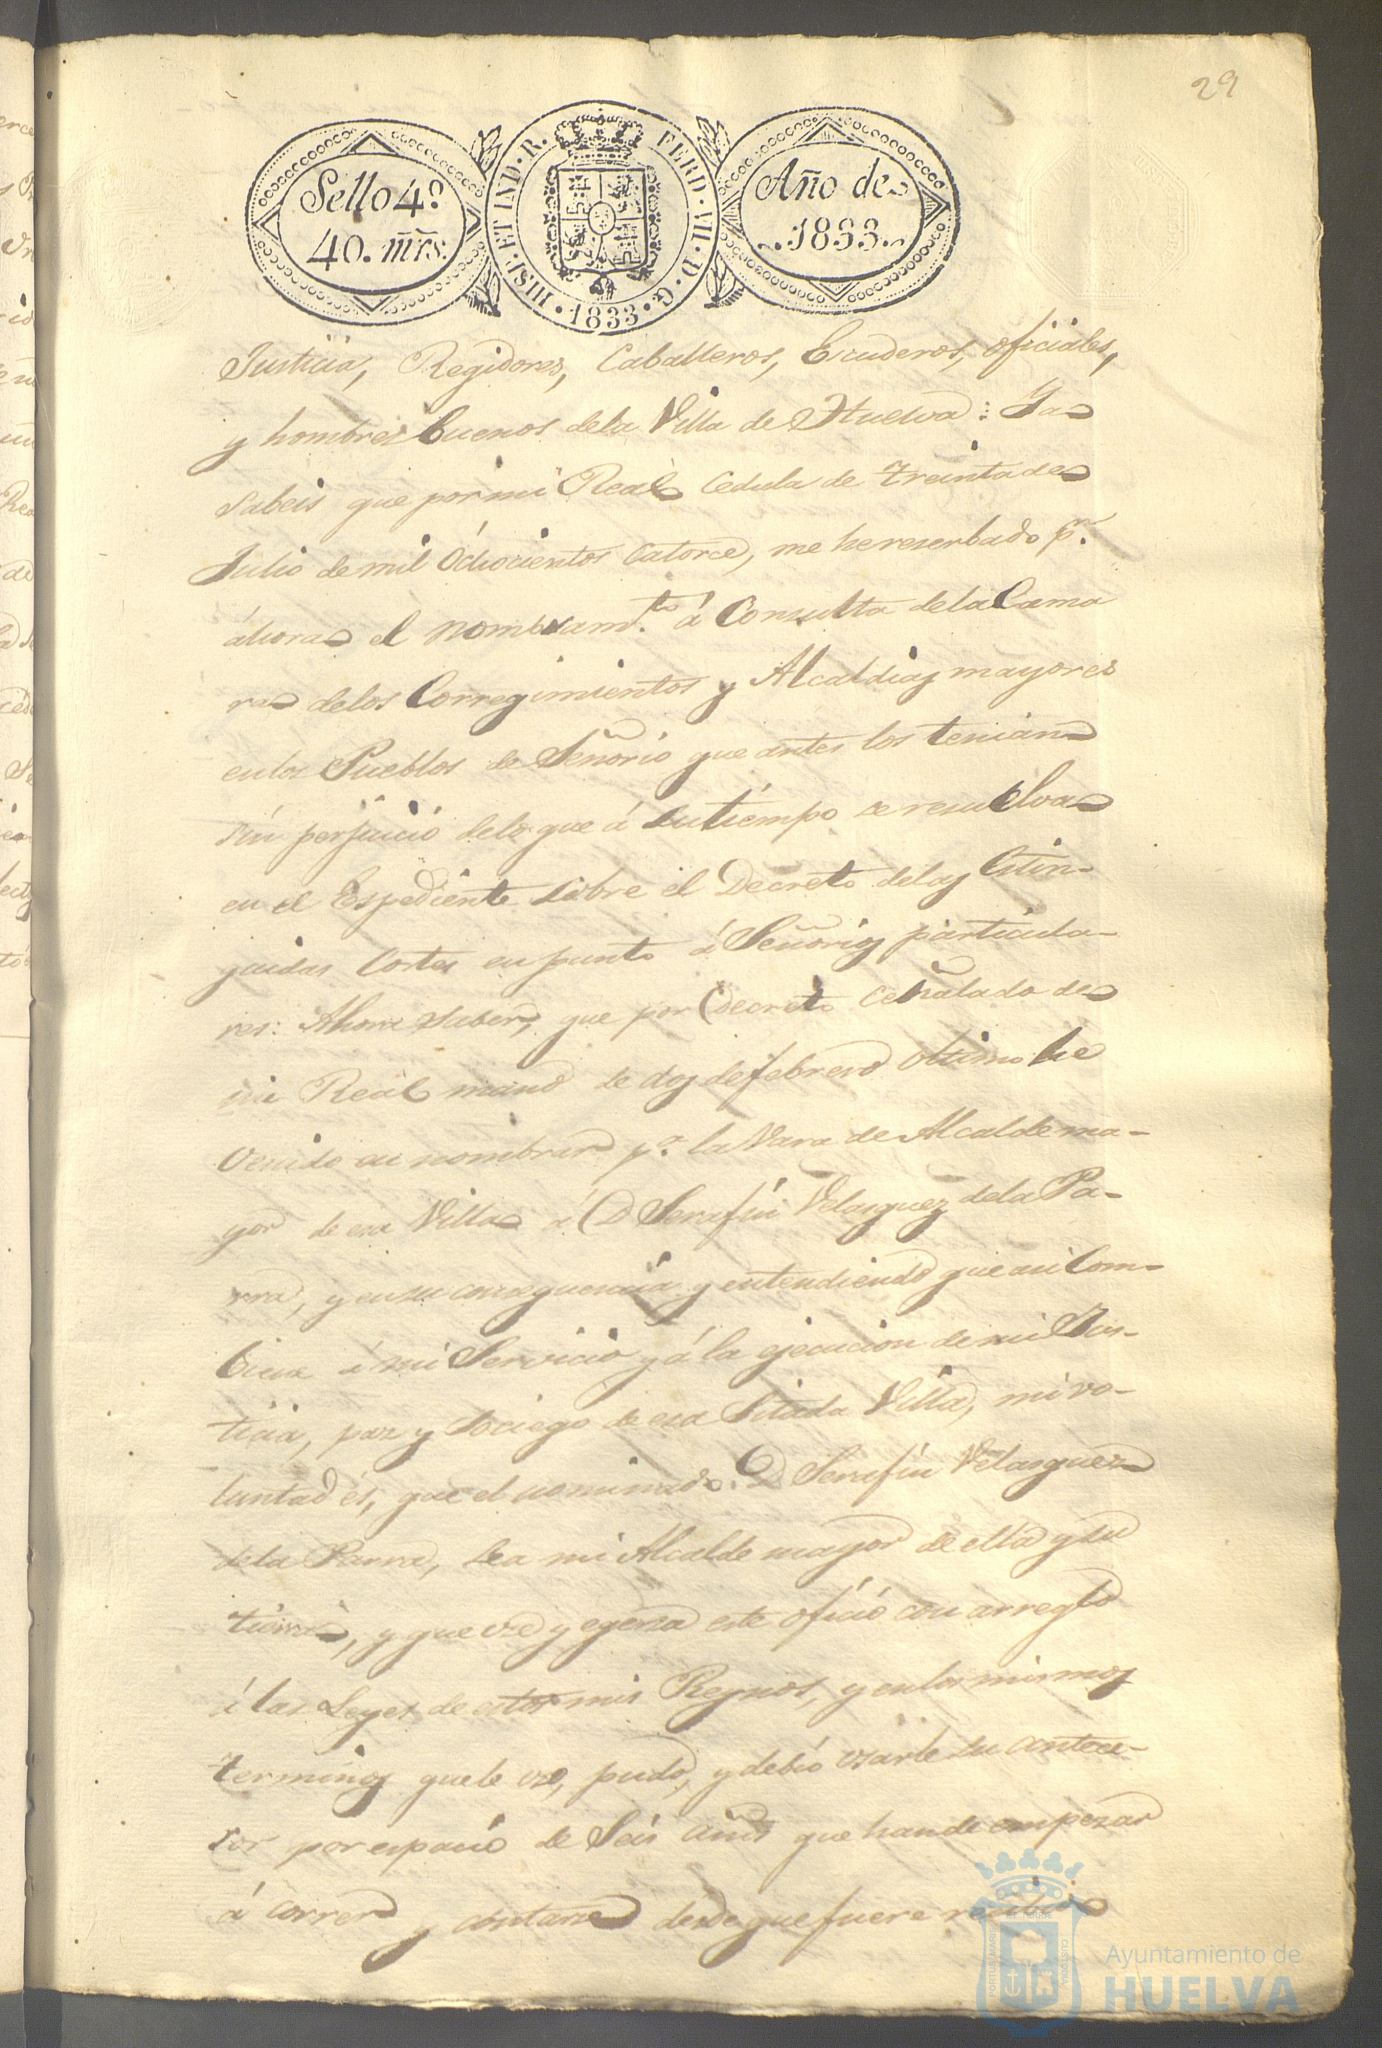 29
Sello 4º
40. mrs.
HISP. ET IND. R. FERD. VII. D. G. 1833.
Año de
1833.
Justicia, Regidores, Caballeros, Escuderos, oficiales,
y hombres buenos dela Villa de Huelva: Ya
sabeis que por mi Real Cedula de treinta de
Julio de mil ochocientos catorce, me he reserbado pr.
áhora el nombram.to á Consulta dela Cama
ra delos Corregimientos y Alcaldias mayores
enlos Pueblos de Señorio que antes los tenian
sin perjuicio delo que á su tiempo se resuelva
en el Espediente sobre el Decreto delas Estin-
guidas Cortes en punto á Señorios particula-
res: Ahora sabed, que por Decreto señalado de
mi Real mano de dos de febrero ultimo he
Venido en nombrar p.a la Vara de Alcalde ma-
yor de esa Villa á D Serafin Velasquez dela Pa-
rra, y en su conseguencia y entendiendo que asi Com-
biene á mi Servicio y á la ejecucion de mi Jus-
ticia, paz y sociego de esa Sitada Villa, mi vo-
luntad és, que el nominado D Serafin Velasquez
dela Parra, sea mi Alcalde mayor de ella y su
tierra, y que use y egersa este oficio con arreglo
á las Leyes de estos mis Reynos, y enlos mismos
terminos que le uso, pudo, y debió usarle su antece-
sor por espacio de Seis años que han de empezar
á correr y contarse desde que fuere recibido
PORTUS MARIS ET TERRAE CUSTODIA
Ayuntamiento de
HUELVA